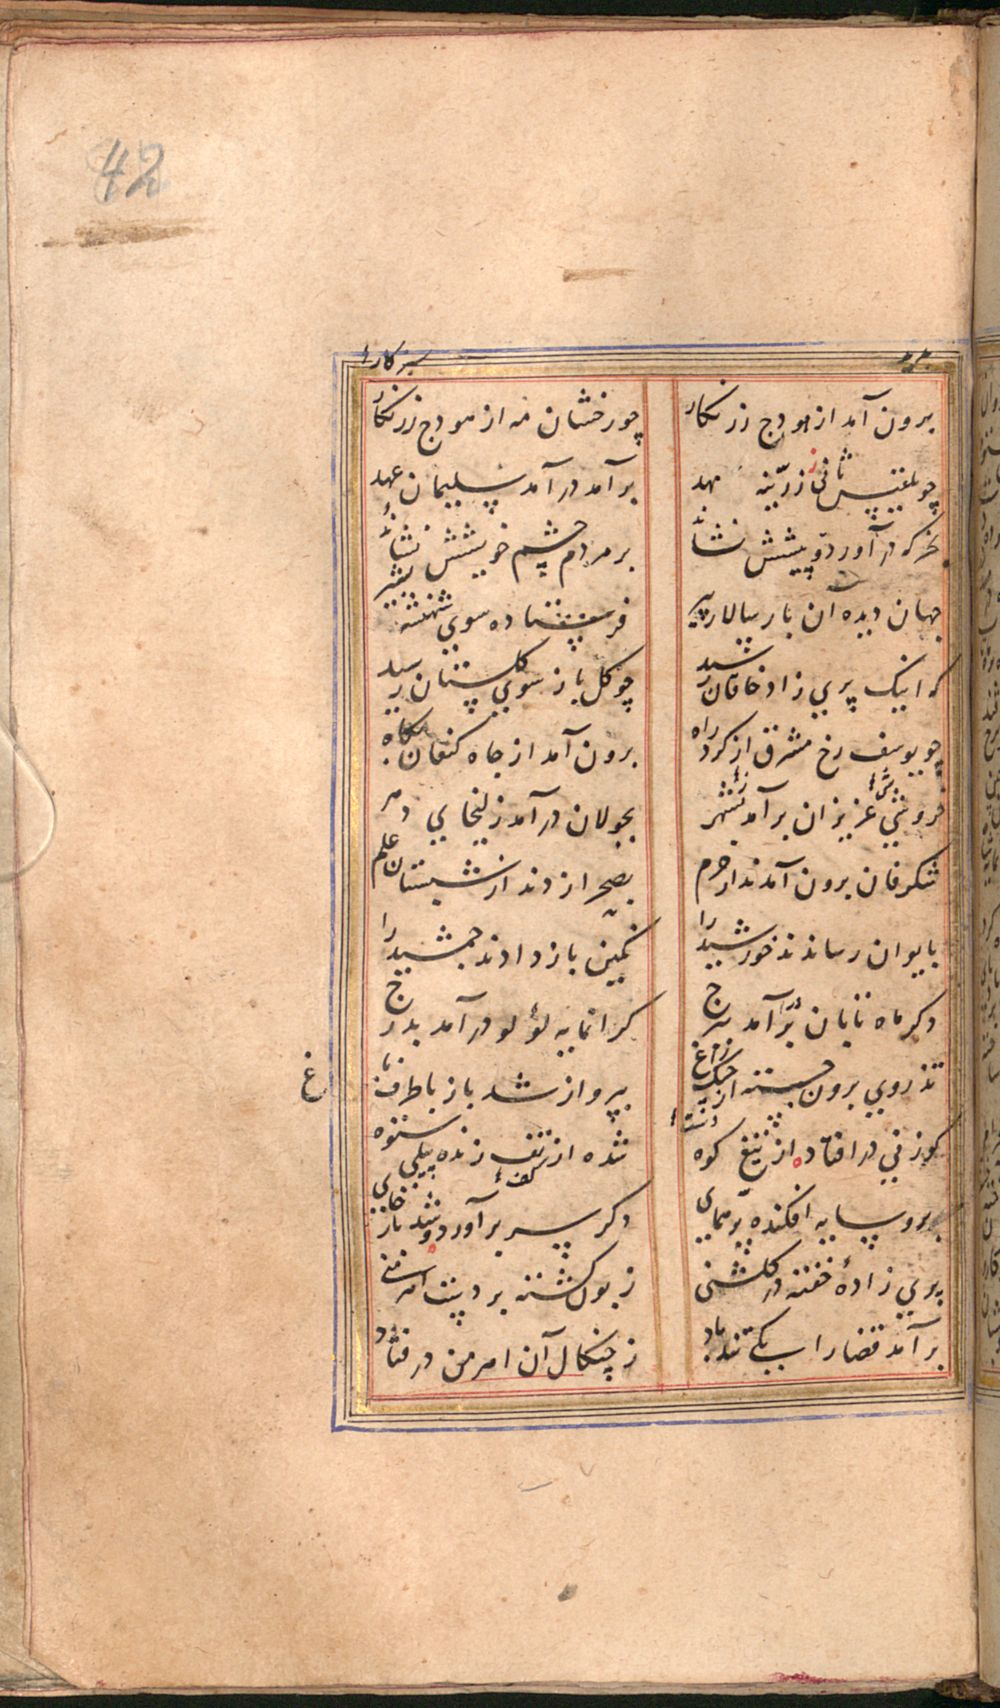 42
سبزکار
برون آمد از هودج زرنگار چو رخشان مه از هودج زرنگار
چو بلقیس ثانی ز زرینه مهد برآمد درآمد سلیمان عهد
درآورد و پیشش نشاند بر مردم چشم خویشش نشاند
جهان دیده آن بار سالار پیر فرستاده سوی شهنشه بشیر
که اینک پری زاد خاقان رسید چو گل باز سوی گلستان رسید
چو یوسف رخ مشرق از گرد راه برون آمد از چاه کنعان
عزیزان برآمد بشهر بجولان درآمد زلیخای دهر
شگرفان برون آمدند از حرم بصحرا زدند از شبستان علم
بایوان رساندند خورشید را نگین باز دادند جمشید را
دگر ماه تابان برآمد ببرج گرانمایه لؤلو درآمد بدرج
تذروی برون جسته از چنگ زاغ بپرواز شد باز باطراف باغ
گوزنی در افتاده از تیغ کوه شده از تف زنده پیلی ستوه
برو سایه افکنده پر همای دگر سر برآورد و شد باز جای
پری زادهٔ خفته در گلشنی زبون گشته بر دست اهرمنی
برآمد قضا را یکی تندباد ز چنگال آن اهرمن در فتاد
غ